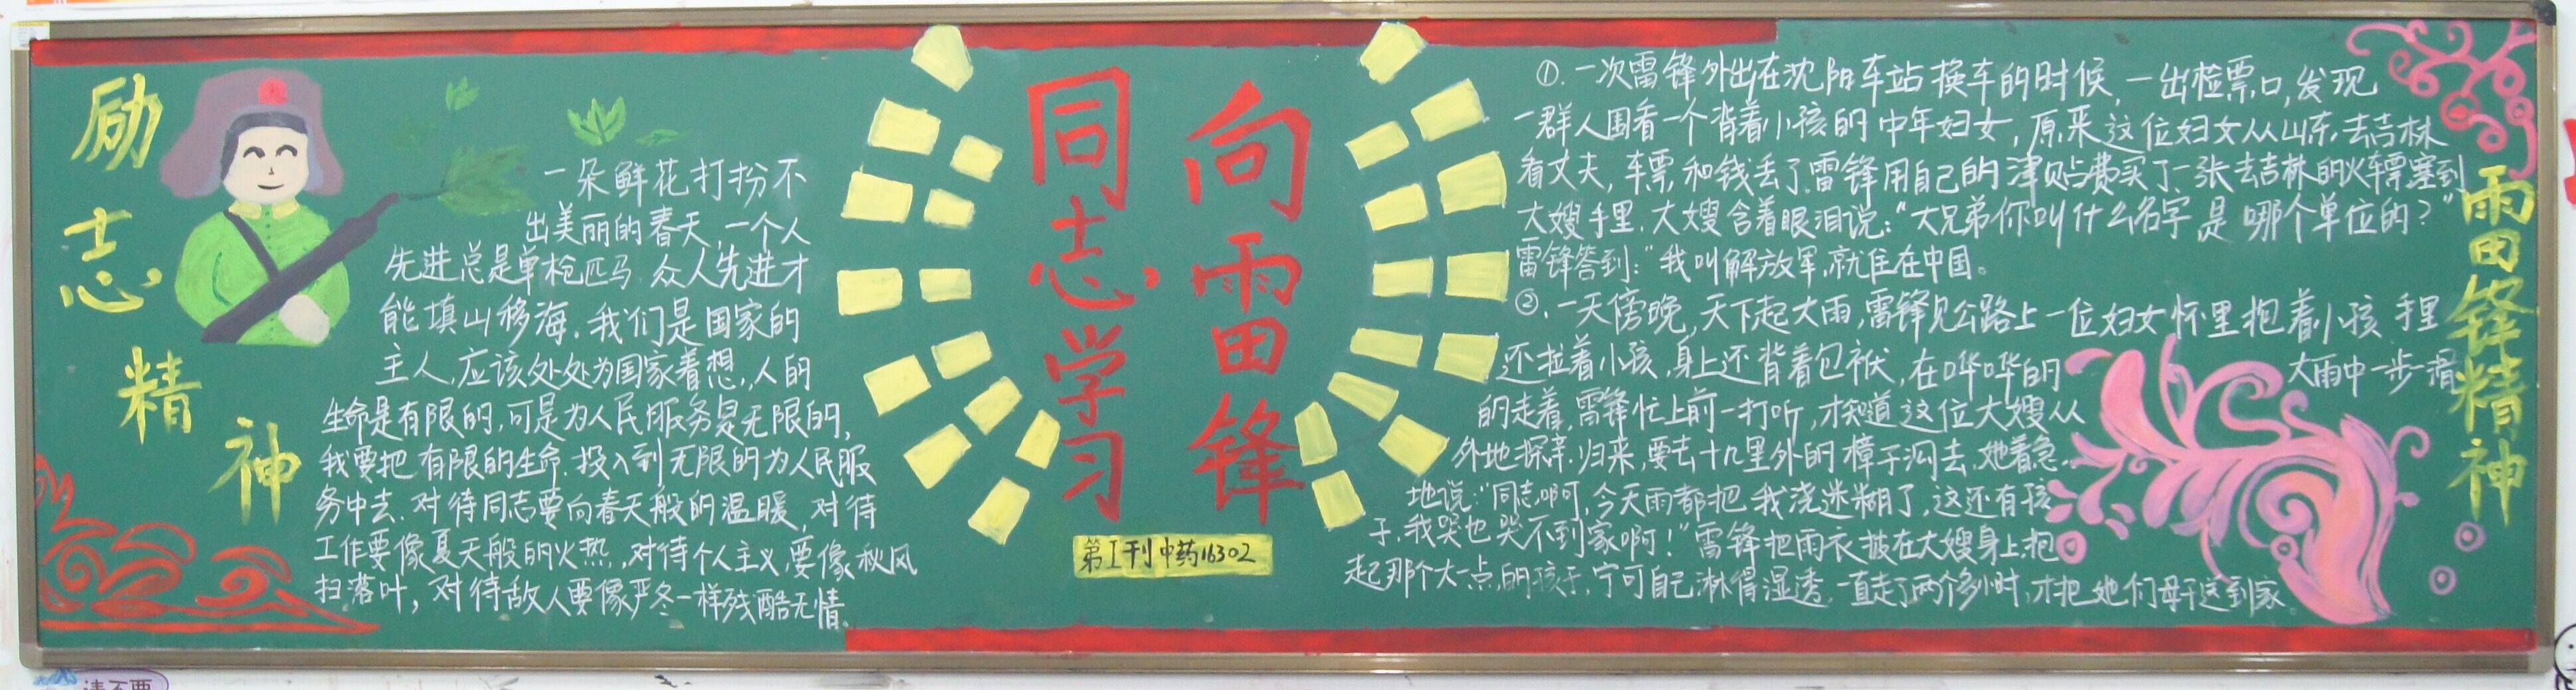 励志精神
一朵鲜花打扮不
出美丽的春天,一个人
先进总是单枪匹马,众人先进才
能填山移海.我们是国家的
主人,应该处处为国家着想,人的
生命是有限的,可是为人民服务是无限的,
我要把有限的生命.投入到无限的为人民服
务中去.对待同志要向春天般的温暖,对待
工作要像夏天般的火热,对待个人主义,要像秋风
扫落叶,对待敌人要像严冬一样残酷无情。
向雷锋
同志学习
第I刊中药16302
①.一次雷锋外出在沈阳车站换车的时候,一出检票口,发现
一群人围看一个背着小孩的中年妇女,原来这位妇女从山东去吉林
看丈夫,车票和钱丢了.雷锋用自己的津贴费买了一张去吉林的火车票塞到
大嫂手里.大嫂含着眼泪说:"大兄弟你叫什么名字是哪个单位的?"
雷锋答到:"我叫解放军,就住在中国。
②.一天傍晚,天下起大雨,雷锋见公路上一位妇女怀里抱着小孩手里
还拉着小孩,身上还背着包袱,在哗哗的大雨中一步一滑
的走着,雷锋忙上前一打听,才知道这位大嫂从
外地探亲归来,要去十几里外的樟子沟去.她着急
地说:"同志啊,今天雨都把我浇迷糊了,这还有孩
子,我哭也哭不到家啊!"雷锋把雨衣披在大嫂身上抱
起那个大一点的孩子,宁可自己淋得湿透.一直走了两个多小时,才把她们母子送到家
雷锋精神
请不要